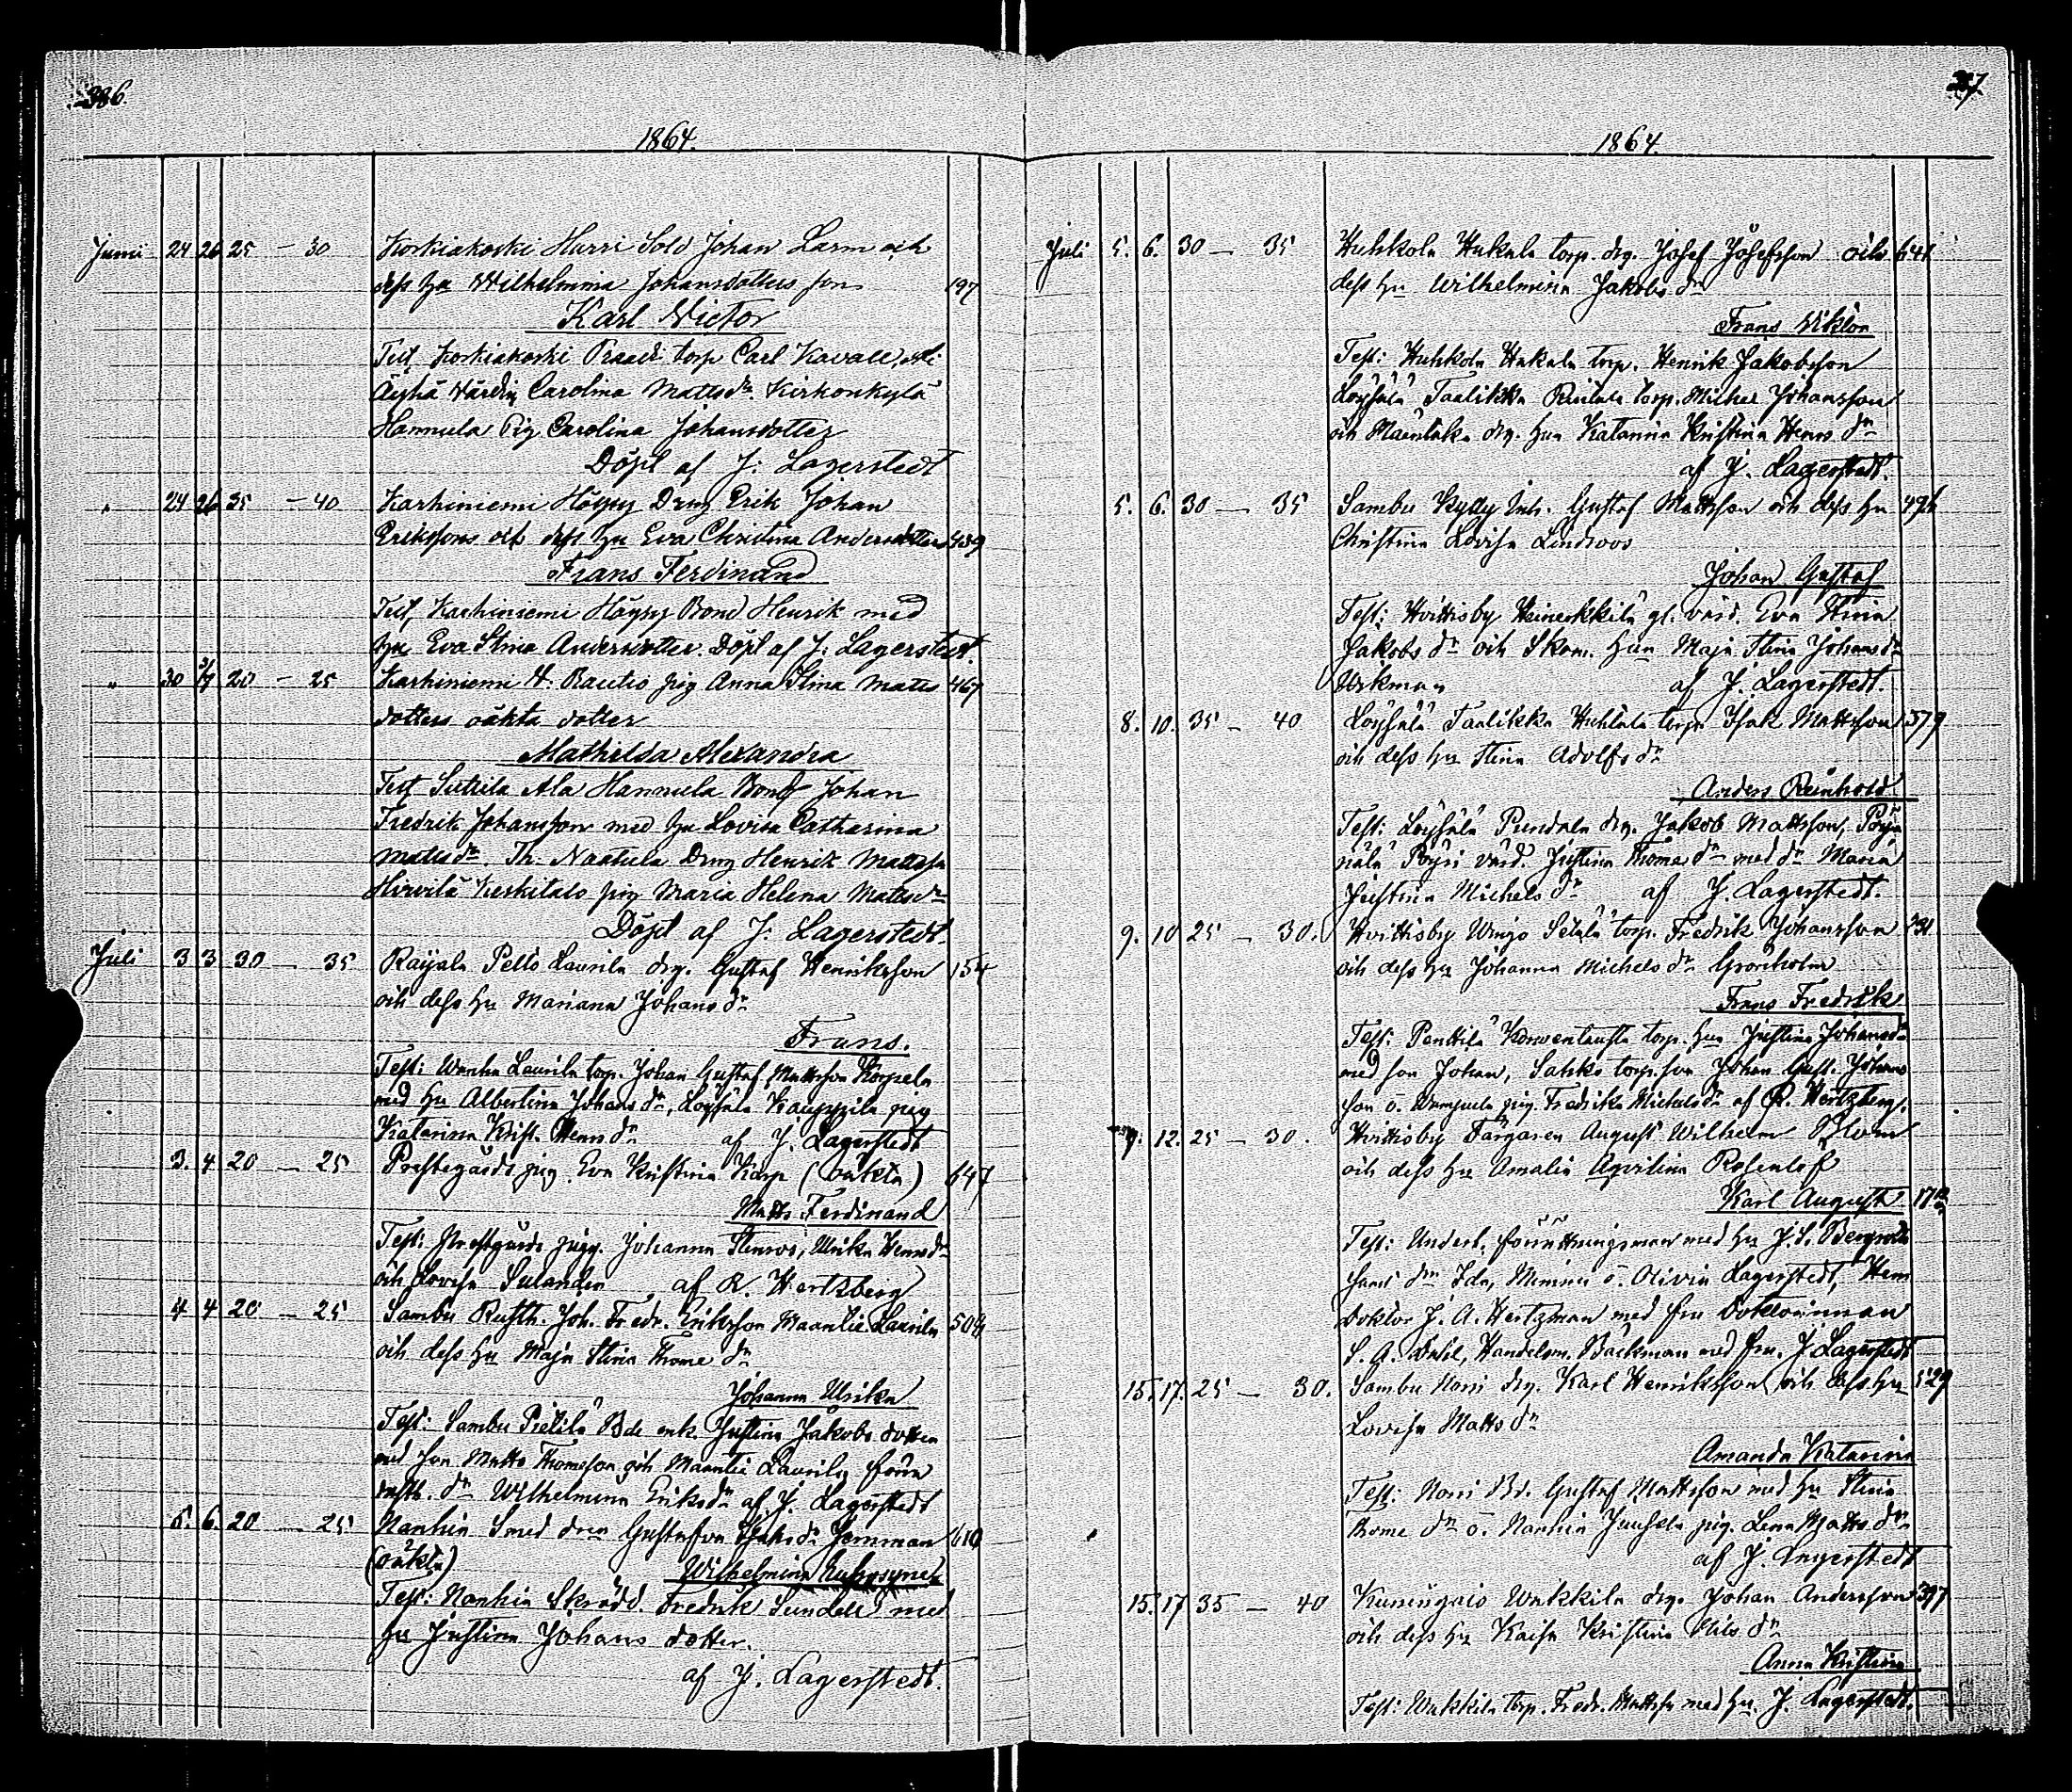 386.
1864.
Junii 24 26 25 — 30 Korkiakoski Hurri Sold Johan Larm och
dess hu Wilhelmina Johansdotters son 197
Karl Victor
Test, Korkiakoski Praadi torp Carl Kavall, och
Äyhä Värdin Carolina Mattsdr. Kirkonkylä
Hannula Pig Carolina Johansdotter
Döpt af J. Lagerstedt
" 24 26 35 — 40 Karhiniemi Höyssy Dreng Erik Johan
Erikssons och dess hu Eva Christina Andersdotters 439
Frans Ferdinand
Test, Karhiniemi Höyssy Bond Henrik med
hu Eva Stina Andersdotter. Döpt af J. Lagerstedt.
" 30 3/7 20 — 25 Karhiniemi N. Rautio pig Anna Stina Matts 467
dotters oäkta dotter
Mathilda Alexandra
Test Suttila Ala Hannula Bond Johan
Fredrik Johansson med hu Lovisa Catharina
Mattsdr. Th. Naatula Dreng Henrik Mattsson
Hirvilä Keskitalo pig Maria Helena Mattsdr
Döpt af J. Lagerstedt.
Juli 3 3 30 — 35 Raijala Pello Laurila drg. Gustaf Henriksson 154
och dess hu Mariana Johans dr
Frans.
Test: Wanha Laurila torp. Johan Gustaf Mattsson Korpela
med hu Albertina Johans dr, Loysälä Kauppila pig
Katarina Krist. Henrs dr af J. Lagerstedt
3. 4 20 — 25 Prestegårds pig. Eva Kristina Karp (oäkta) 647
Matts Ferdinand
Test: Prestgårds pigg. Johanna Stenroos, Ulrika Henrs dr
och Lovisa Sulander af R. Hertzberg
4 4 20 — 25 Sambu Rusth. Joh. Fredr. Eriksson Maantie Laurila 504
och dess hu Maja Stina Thome dr
Johanna Ulrika
Test: Sambu Pietilä Bde enk. Justina Jakobs dotter
med son Matts Thomasson och Maantie Laurila förra
rusth. dr Wilhelmina Eriksdr af J. Lagerstedt
5. 6. 20 — 25 Nanhia Smed dren Gustafva Isaksdr Jernman 610
(oäkta) Wilhelmina Eufrosyne
Test: Nanhia Skrädd. Fredrik Sundell med
hu Justina Johans dotter.
af J. Lagerstedt.
387
1864.
Juli 5. 6. 30 — 35 Huhkola Hukala torp. drg. Josef Josefsson och 641
dess hu Wilhelmina Jakobs dr
Frans Viktor
Test: Huhkola Hukala torp. Henrik Jakobsson
Loysälä Taalikka Rintala torp. Mikel Johansson
och Maentaka drg. hun Katarina Kristina Henrs dr
af J. Lagerstedt.
5. 6. 30 — 35 Sambu Kylly Inh. Gustaf Mattsson och dess hu 496
Christina Lovisa Lindroos
Johan Gustaf
Test: Hvittisby Heinerkkilä gl. värd. Eva Stina
Jakobs dr och Skom. hun Maja Stina Johansdr
Wikman af J. Lagerstedt.
8. 10. 35 — 40 Loysälä Taalikka Huhtala torp. Isak Mattsson 579
och dess hu Stina Adolfs dr
Anders Reinhold
Test: Loysälä Pundala drg. Jakob Mattsson, Pöyri
nälä Pöyri värd. Justina Thomas dr med dr Maria
Justina Michels dr af J. Lagerstedt.
9. 10 25 — 30. Hvittisby Uusjo Setälä torp. Fredrik Johansson 231
och dess hu Johanna Michels dr Grönholm
Frans Fredrik
Test: Penttilä Korventausta torp. hun Justina Johansdr
med son Johan, Sahko torp. son Johan Gust. Johans
son o. Wampula pig. Fredrika Michelsdr af R. Hertzberg.
9. 12. 25 — 30. Hvittisby Färgaren August Wilhelm Blom
och dess hu Amalia Aqvilina Rosenlöf
Karl August 17
Test: Underl. förrättningsman med hu J. S. Bergroth
hans drn Ida, Minna o. Olivia Lagerstedt, Herr
Doktor J. A. Hertzman med fru Doktorinnan
S. A. Dahl, Handelsm. Bäckman med fru. J. Lagerstedt
15. 17. 25 — 30. Sambu Noni drg. Karl Henriksson och dess hu 529
Lovisa Matts dr
Amanda Katarina
Test: Noni Bd. Gustaf Mattsson med hu Stina
Thome dr o. Nanhia Juusela pig. Lena Matts dr
af J. Lagerstedt
15. 17 35 — 40 Kuningais Wakkila drg. Johan Andersson 397
och dess hu Kaisa Kristina Nils dr
Anna Kristina
Test: Wakkila torp. Fredr. Mattss med hu. J. Lagerstedt.